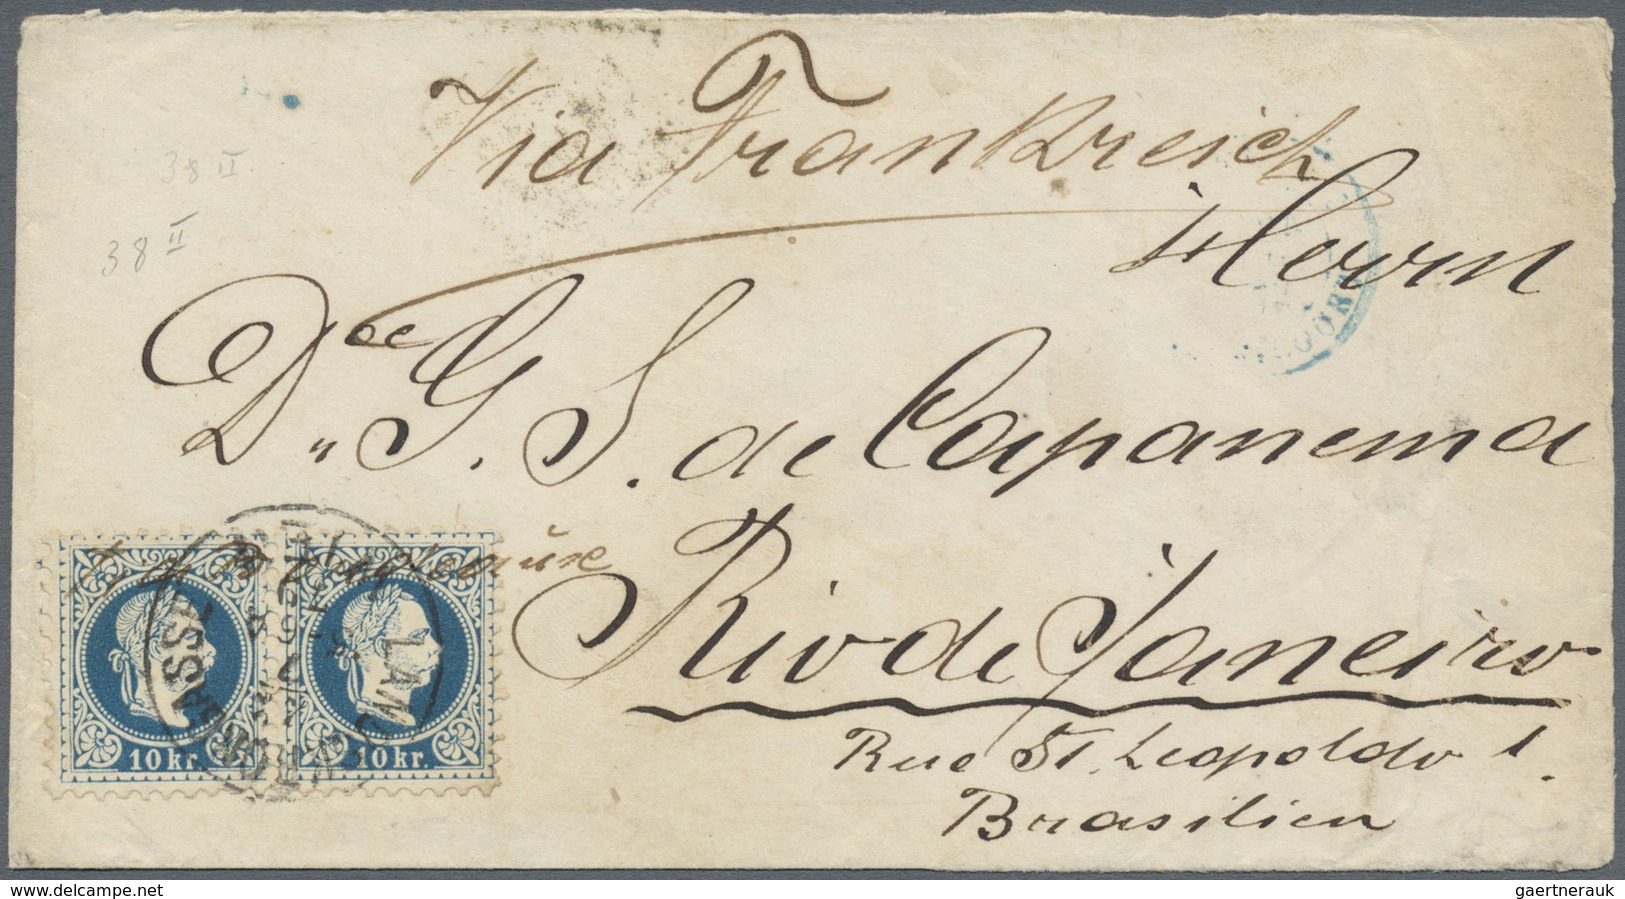 Via Frankreich
Herrn
Doc D" G. S. de Capanema
Rio de Janeiro
Rue St. Leopoldo 1.
Brasilien
38 II
38 II
10 kr.
10 kr.
LAND
GASSE
delcampe.net
gaertnerauk